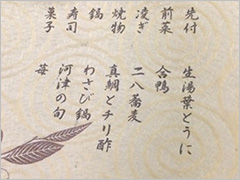 先付 生湯葉とうに
前菜 合鴨
凌ぎ 二八蕎麦
焼物 真鯛とチリ酢
鍋 わさび鍋
寿司 河津の旬
菓子 苺